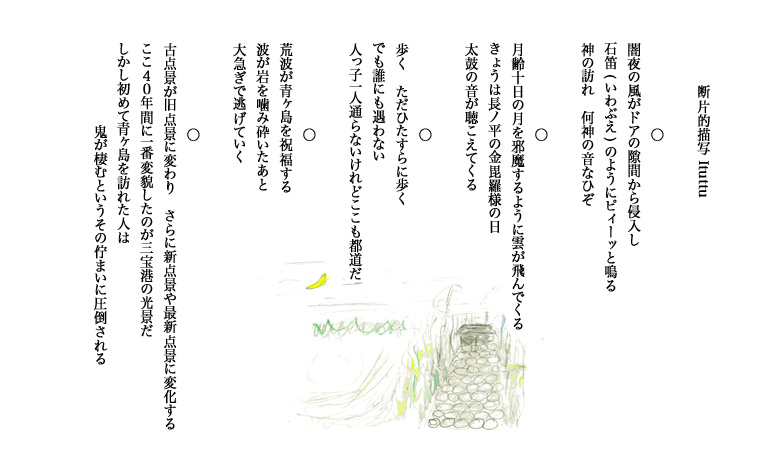 断片的描写 Ituttu
○
闇夜の風がドアの隙間から侵入し
石笛(いわぶえ)のようにピィーッと鳴る
神の訪れ　何神の音なひぞ
○
月齢十日の月を邪魔するように雲が飛んでくる
きょうは長ノ平の金毘羅様の日
太鼓の音が聴こえてくる
○
歩く　ただひたすらに歩く
でも誰にも遇わない
人っ子一人通らないけれどここも都道だ
○
荒波が青ヶ島を祝福する
波が岩を噛み砕いたあと
大急ぎで逃げていく
○
古点景が旧点景に変わり　さらに新点景や最新点景に変化する
ここ40年間に一番変貌したのが三宝港の光景だ
しかし初めて青ヶ島を訪れた人は
鬼が棲むというその佇まいに圧倒される